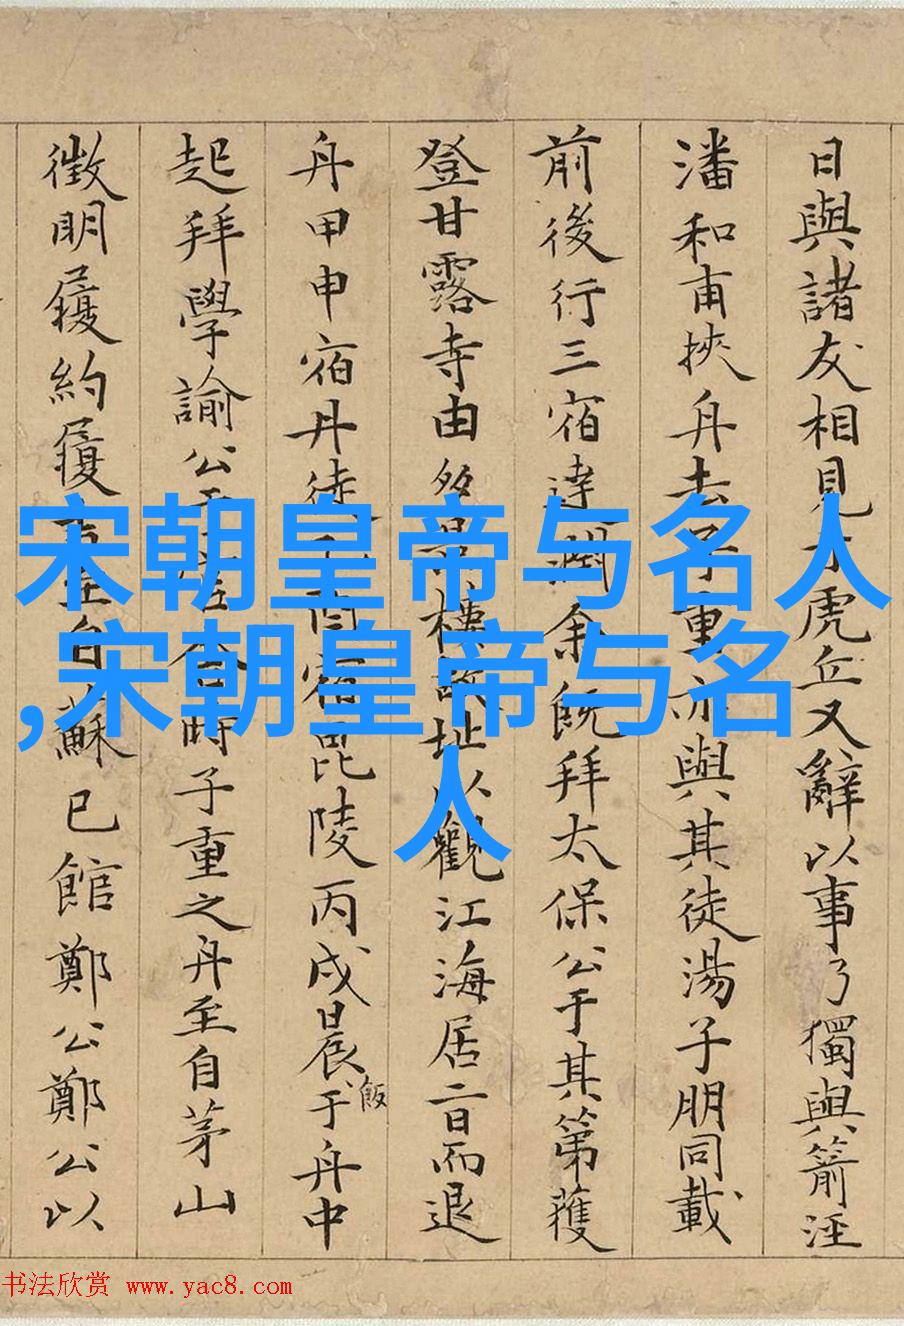 日與諸友相見于虎丘又辭以事乃獨與箭涇
潘和甫挾舟去子重亦與其徒湯子朋同載
前後行三宿達潤余既拜太保公于其第獲
登甘露寺由多景樓故址以觀江海居二日而退
舟甲申宿丹徒乙酉宿毘陵丙戌晨飯于舟中
起拜學諭公于時子重之舟至自茅山
徵明履約履至自蘇已館鄭公鄭公以
宋朝皇帝与名人
,宋朝皇帝与名
人
书法欣赏 www.yac8.com